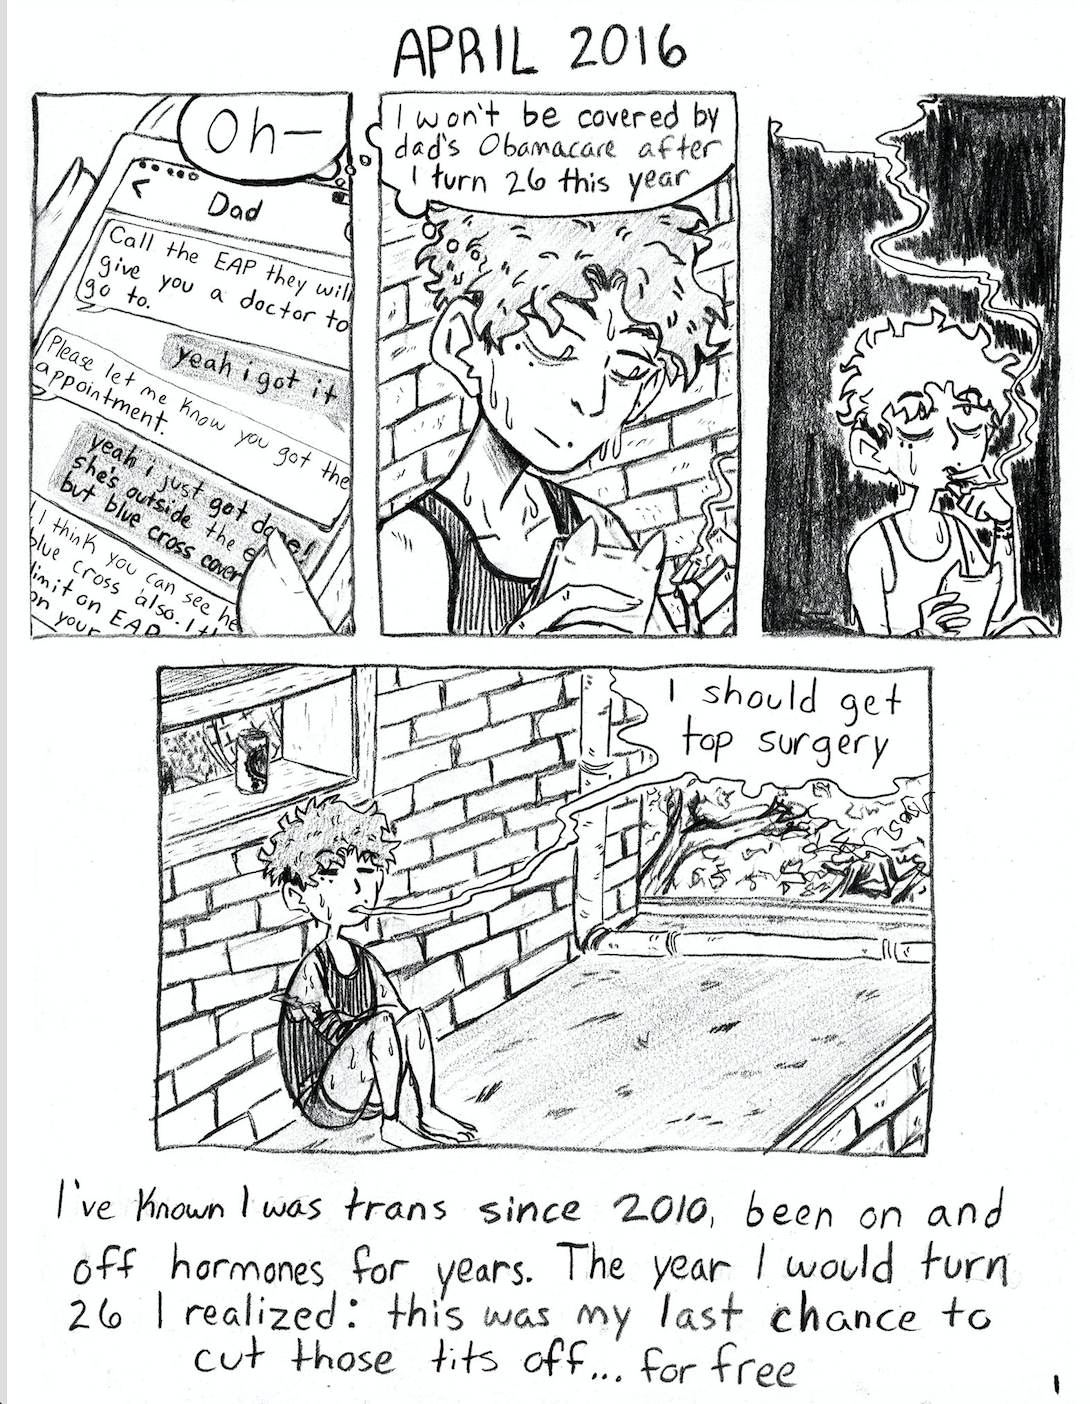 APRIL 2016
Oh—
Dad
Call the EAP they will
give you a doctor to
go to.
yeah i got it
Please let me know you got the
appointment.
yeah i just got done!
she's outside the
but blue cross
I think you can see
blue cross also. I
limit on EAP
on your
I won't be covered by
dad's Obamacare after
I turn 26 this year
I should get
top surgery
I've known I was trans since 2010, been on and
off hormones for years. The year I would turn
26 I realized: this was my last chance to
cut those tits off... for free
1